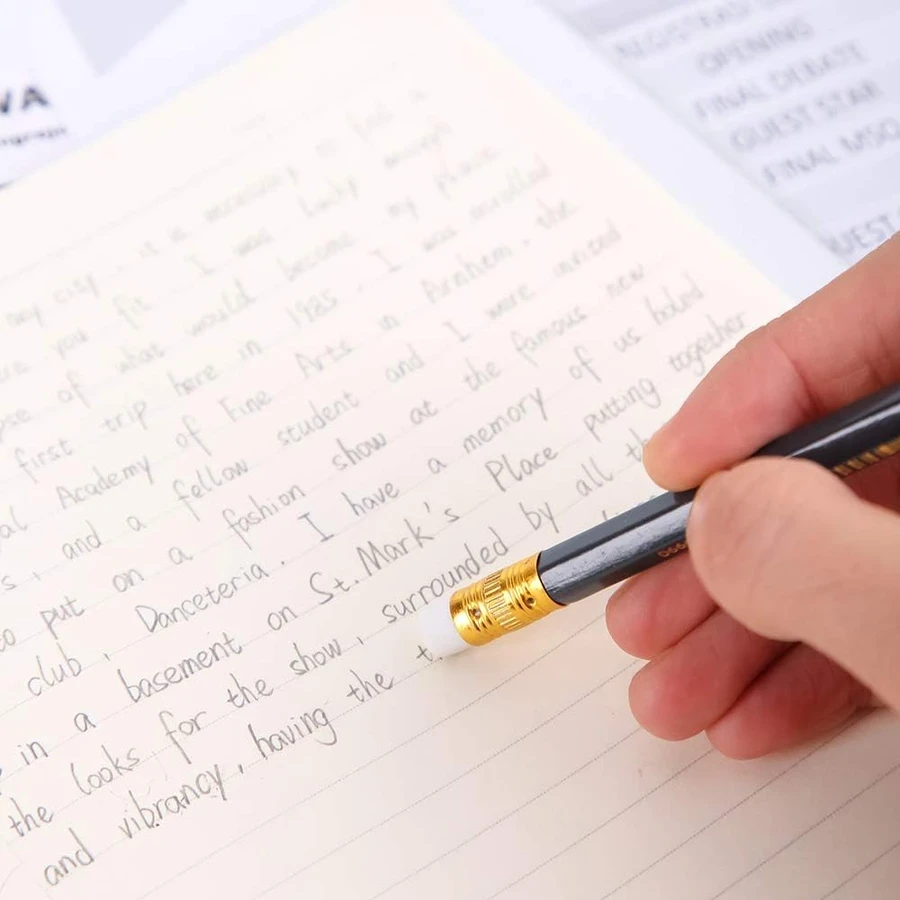 WA
REGISTRAT
OPENING
FINAL DEBATE
GUEST STAR
FINAL MSO
UEST
my city . it is necessary to find a
re you fit . I was lucky enough
pse of what would become my place
first trip here in 1985 . I was enrolled
al Academy of Fine Arts in Arnhem , the
s , and a fellow student and I were invited
to put on a fashion show at the famous new
club , Danceteria . I have a memory of us holed
in a basement on St. Mark's Place putting together
the looks for the show , surrounded by all th
and vibrancy , having the t